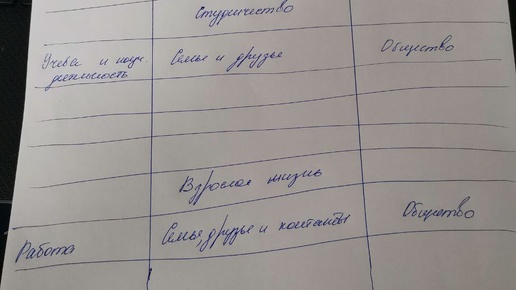 Студенчество
Учеба и науч.
деятельность
Семья и друзья
Общество
Взрослая жизнь
Работа
Семья, друзья и контакты
Общество